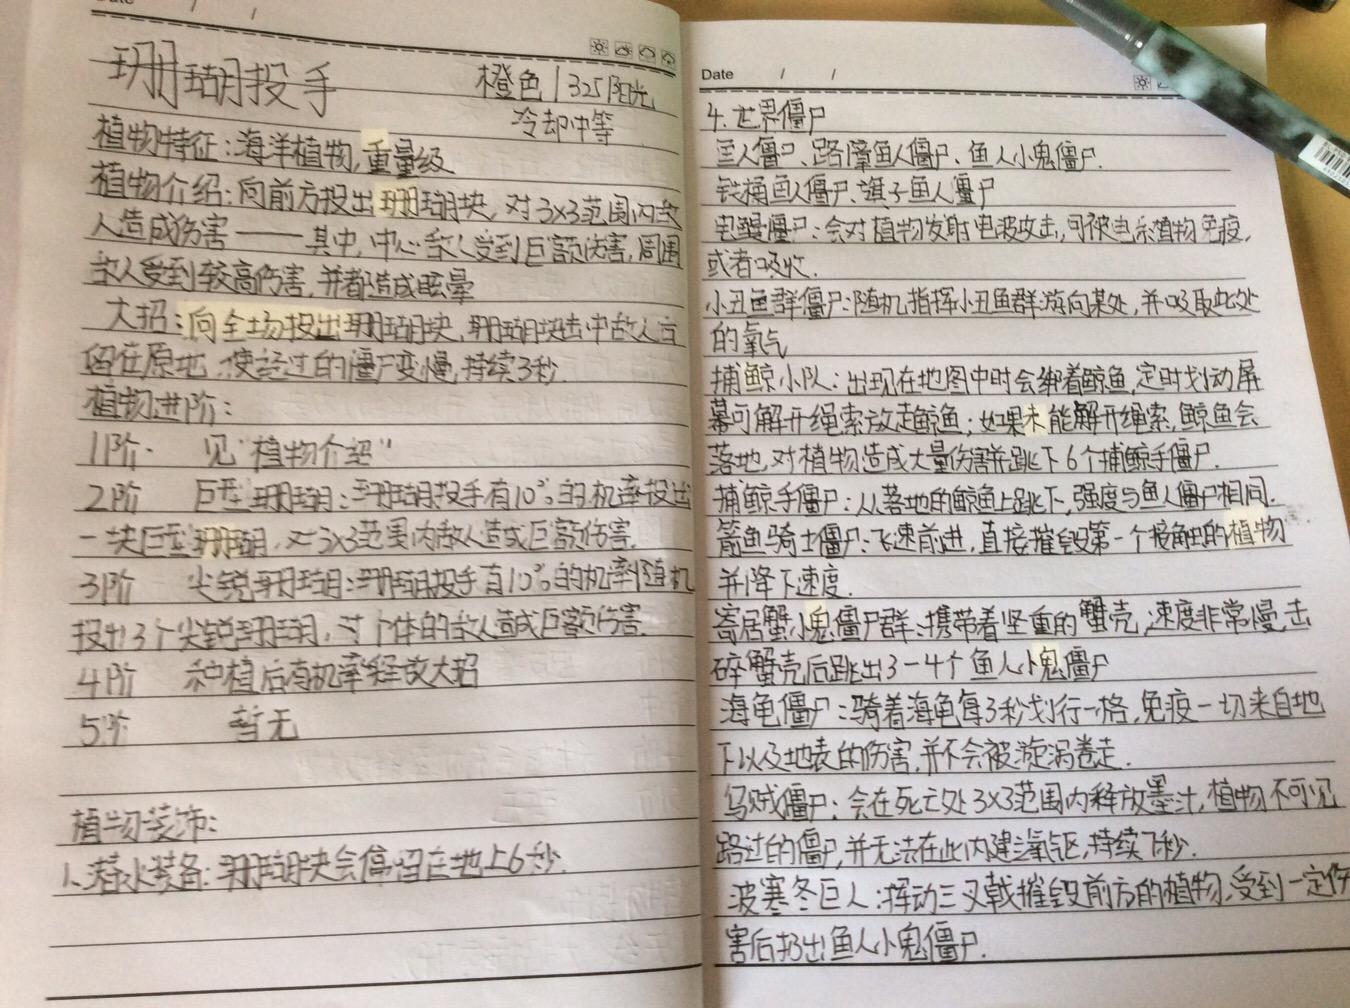 Date / /
珊瑚投手
橙色 / 325阳光
冷却中等
植物特征：海洋植物，重量级
植物介绍：向前方投出珊瑚块，对3×3范围内敌
人造成伤害——其中，中心敌人受到巨额伤害，周围
敌人受到较高伤害，并都造成眩晕
大招：向全场投出珊瑚块，珊瑚块击中敌人言
留在原地，使经过的僵尸变慢，持续3秒.
植物进阶：
1阶. 见"植物介绍"
2阶 巨型珊瑚：珊瑚投手有10%的机率投出
一块巨型珊瑚，对3×3范围内敌人造成巨额伤害.
3阶 尖锐珊瑚：珊瑚投手有10%的机率随机
投出3个尖锐珊瑚，对个体的敌人造成巨额伤害.
4阶 种植后有机率释放大招
5阶 暂无
植物装饰：
1.潜水装备：珊瑚块会停留在地上6秒.
Date / /
4.世界僵尸
巨人僵尸、路障鱼人僵尸、鱼人小鬼僵尸.
铁桶鱼人僵尸、旗子鱼人僵尸
电鳗僵尸：会对植物发射电波攻击，可被电系植物免疫，
或者吸收.
小丑鱼群僵尸：随机指挥小丑鱼群游向某处，并吸取此处
的氧气
捕鲸小队：出现在地图中时会绑着鲸鱼，定时划动屏
幕可解开绳索放走鲸鱼；如果未能解开绳索，鲸鱼会
落地，对植物造成大量伤害并跳下6个捕鲸手僵尸.
捕鲸手僵尸：从落地的鲸鱼上跳下，强度与鱼人僵尸相同.
箭鱼骑士僵尸：飞速前进，直接摧毁第一个接触的植物
并降下速度.
寄居蟹小鬼僵尸群：携带着坚重的蟹壳，速度非常慢，击
碎蟹壳后跳出3-4个鱼人小鬼僵尸
海龟僵尸：骑着海龟每3秒划行一格，免疫一切来自地
下以及地表的伤害，并不会被漩涡卷走.
乌贼僵尸：会在死亡处3×3范围内释放墨汁，植物不可见
路过的僵尸，并无法在此内建立氧气区，持续7秒.
波塞冬巨人：挥动三叉戟摧毁前方的植物，受到一定伤
害后扔出鱼人小鬼僵尸.